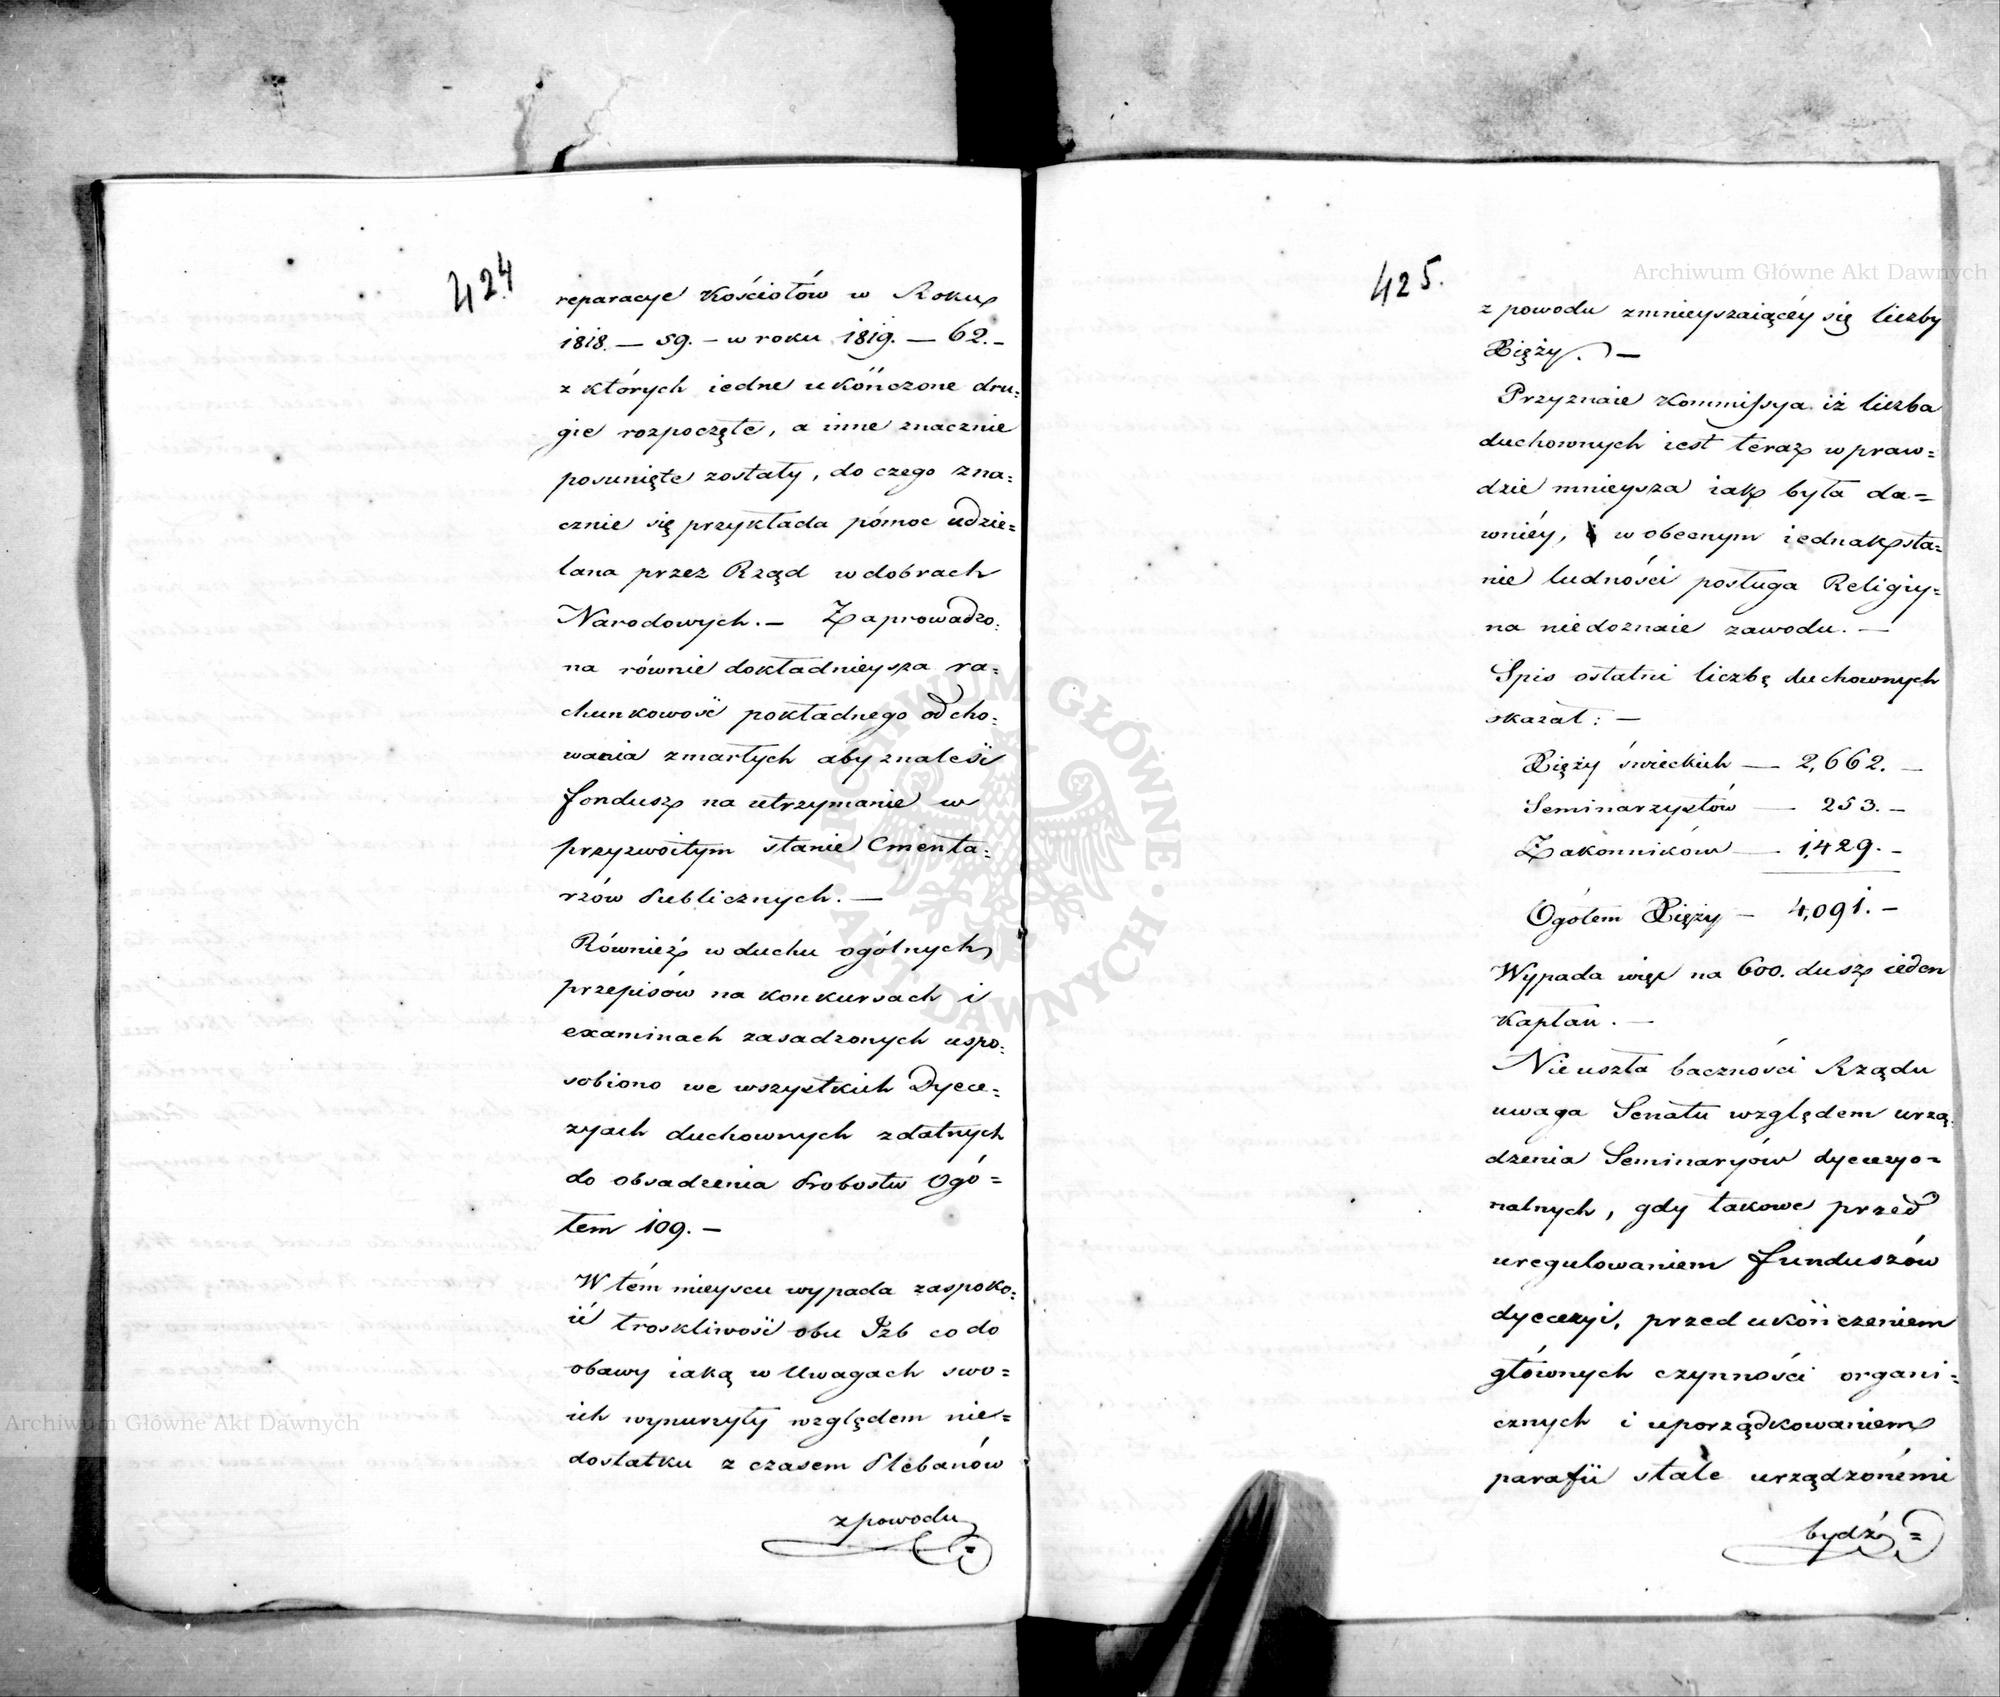 424
reparacye Kościołów w Roku
1818. — 59. — w roku 1819. — 62. —
z których iedne ukończone dru=
gie rozpoczęte, a inne znacznie
posunięte zostały, do czego zna=
cznie się przykłada pómoc udzie=
lana przez Rząd w dobrach
Narodowych. — Zaprowadzo=
na równie dokładnieysza ra=
chunkowość pokładnego od cho=
wania zmarłych aby znaleść
fondusz na utrzymanie w
przyzwoitym stanie Cmenta=
rzów Publicznych. —
Również w duchu ogólnych
przepisów na konkursach i
examinach zasadzonych uspo=
sobiono we wszystkich Dyece=
zyach duchownych zdatnych
do obsadzenia Probostw Ogó=
łem 109. —
W tém mieyscu wypada zaspoko=
ić troskliwość obu Izb co do
obawy iaką w Uwagach swo=
ich wynurzyły względem nie=
dostatku z czasem Plebanów
z powodu
425.
z powodu zmnieyszaiącéy się liczby
Xięży. —
Przyznaie Kommissya iż liczba
duchownych iest teraz wpraw=
dzie mnieysza iak była da=
wniéy, w obecnym iednak sta=
nie ludności posługa Religiy=
na niedoznaie zawodu. —
Spis ostatni liczbę duchownych
okazał: —
Xięży świeckich — 2,662. —
Seminarzystów — 253. —
Zakonników — 1,429. —
Ogółem Xięży — 4,091. —
Wypada więc na 600. dusz ieden
Kapłan. —
Nie uszła baczności Rządu
uwaga Senatu względem urzą=
dzenia Seminaryów dyecezyo=
nalnych, gdy takowe przed
uregulowaniem funduszów
dyecezyi, przed ukończeniem
głównych czynności organi=
cznych i uporządkowaniem
parafii stale urządzonémi
bydź =
Archiwum Główne Akt Dawnych
Archiwum Główne Akt Dawnych
ARCHIWUM GŁÓWNE · AKT DAWNYCH ·